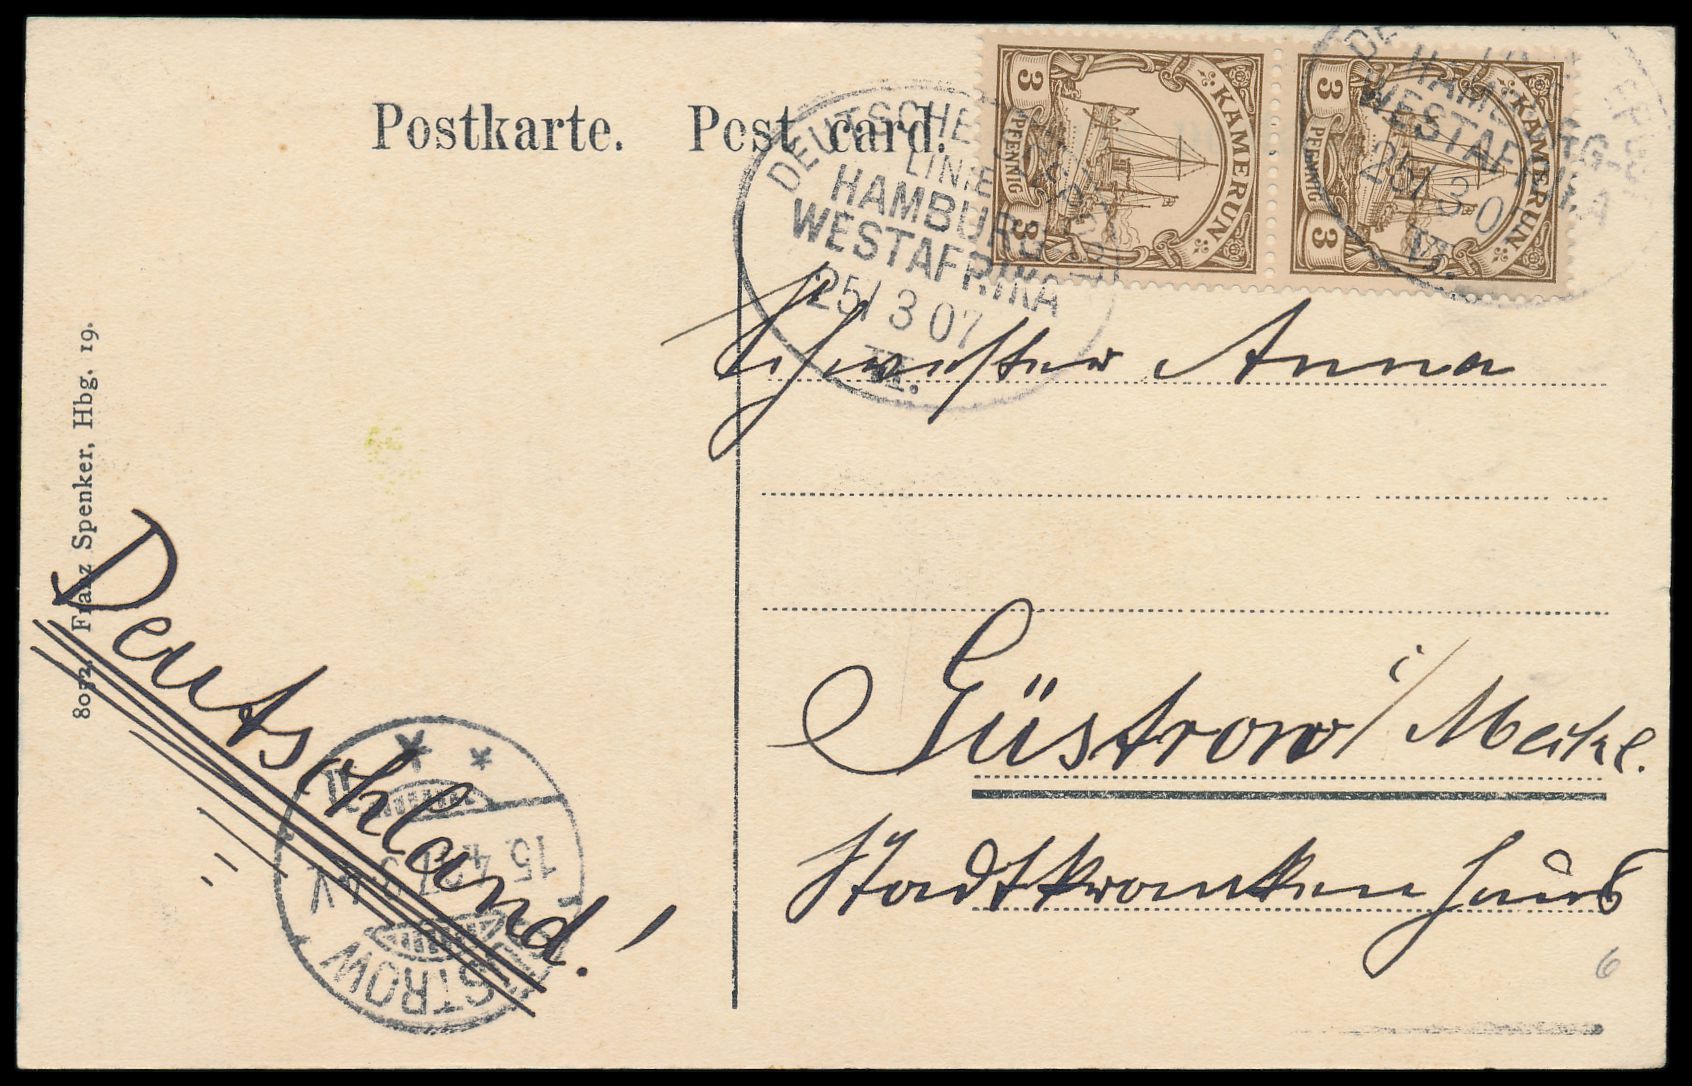 Postkarte. Post card.
KAMERUN
3 PFENNIG 3
KAMERUN
3 PFENNIG 3
DEUTSCHE SEEPOST
LINIE
HAMBURG-
WESTAFRIKA
25/3 07
VI.
HAMBURG-
WESTAFRIKA
25/3 0
VI.
Schwester Anna
Güstrow i/Meckl.
Stadtkrankenhaus
Deutschland!
8052, Franz Spenker, Hbg. 19.
GÜSTROW
15.
4.07
V
6